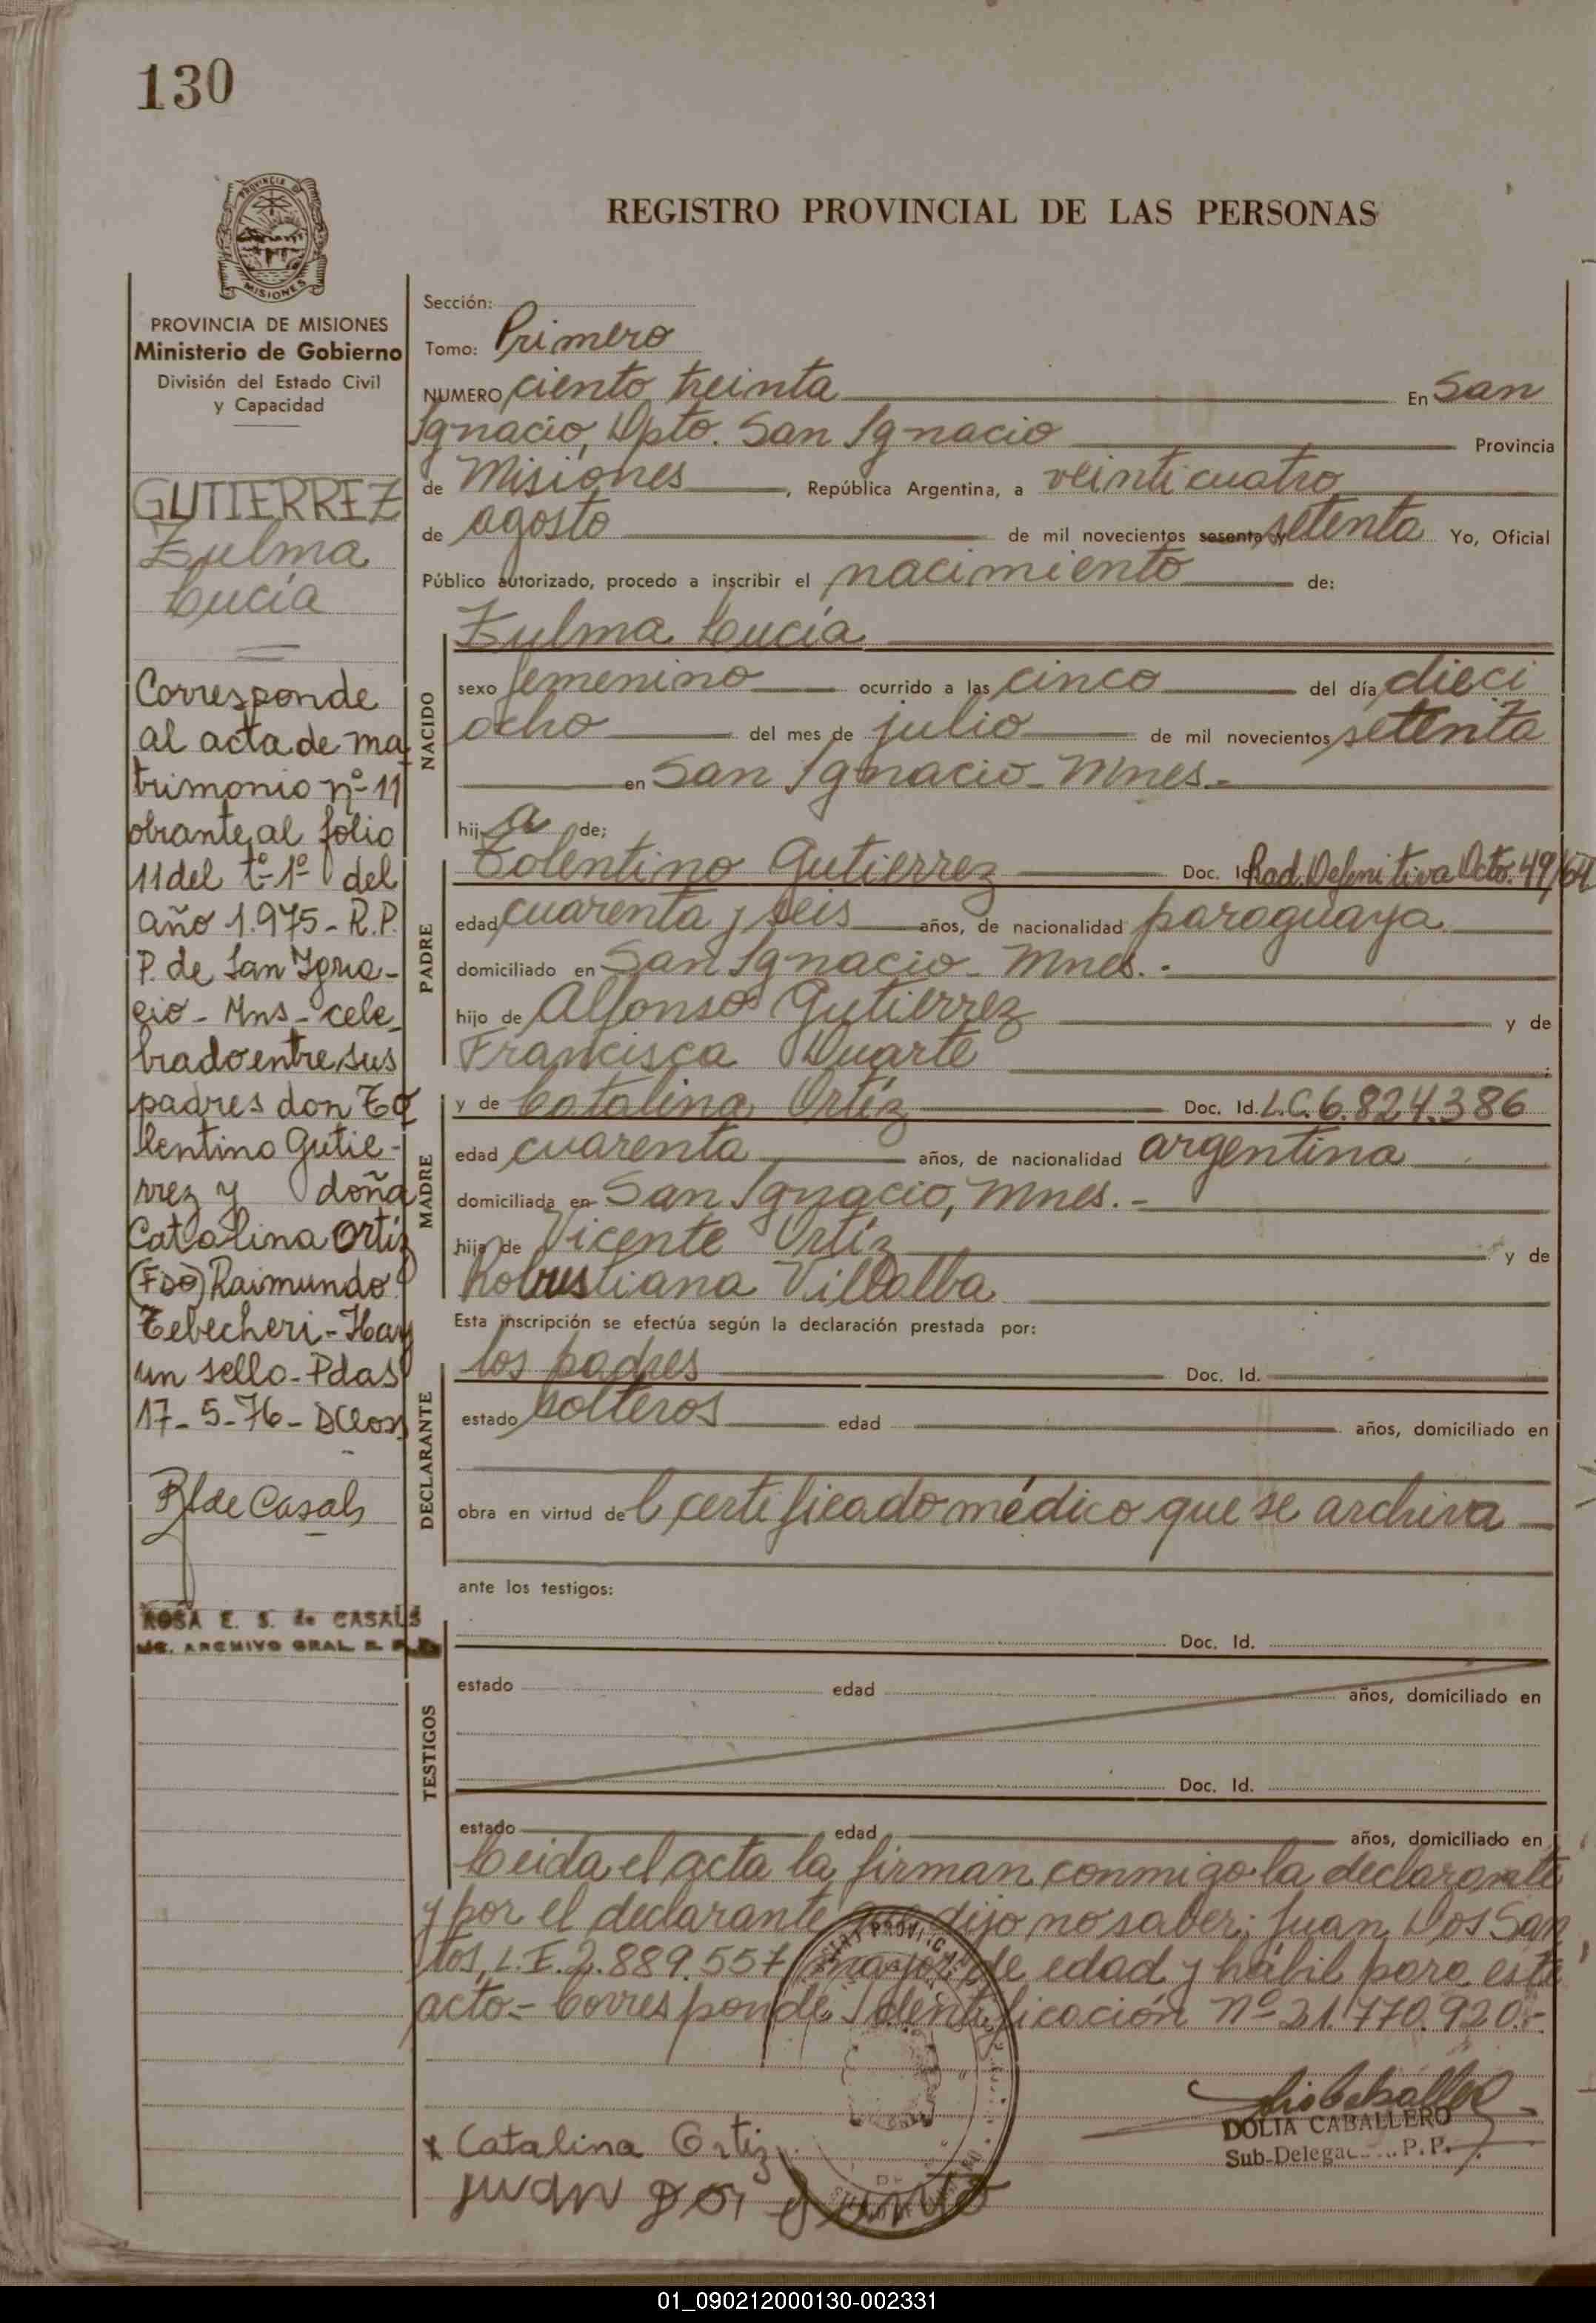 130
PROVINCIA DE
MISIONES
REGISTRO PROVINCIAL DE LAS PERSONAS
PROVINCIA DE MISIONES
Ministerio de Gobierno
División del Estado Civil
y Capacidad
GUTIERREZ
Zulma
Lucía
Corresponde
al acta de ma
trimonio nº 11
obrante al folio
11 del tº 1º del
año 1.975 - R.P.
P. de San Igna-
cio - Mns - cele
brado entre sus
padres don To
lentino Gutie-
rrez y doña
Catalina Ortiz
(Fdo) Raimundo
Tebecheri - Hay
un sello - Pdas
17-5-76 -
R de Casals
ROSA E. S. de CASALS
ARCHIVO GRAL. R. P.
Sección:
Tomo: Primero
NUMERO ciento treinta En San
Ignacio, Dpto. San Ignacio Provincia
de Misiones, República Argentina, a veinticuatro
de agosto de mil novecientos sesenta y setenta Yo, Oficial
Público autorizado, procedo a inscribir el nacimiento de:
NACIDO
Zulma Lucía
sexo femenino ocurrido a las cinco del día dieci
ocho del mes de julio de mil novecientos setenta
en San Ignacio - Mnes. -
hij a de;
PADRE
Tolentino Gutierrez Doc. Id. Rad. Definitiva Dcto. 49/64
edad cuarenta y seis años, de nacionalidad paraguaya
domiciliado en San Ignacio - Mnes. -
hijo de Alfonso Gutierrez y de
Francisca Duarte
MADRE
y de Catalina Ortíz Doc. Id. L.C. 6.824.386
edad cuarenta años, de nacionalidad argentina
domiciliada en San Ignacio, Mnes. -
hija de Vicente Ortíz y de
Robustiana Villalba
Esta inscripción se efectúa según la declaración prestada por:
DECLARANTE
los padres Doc. Id.
estado solteros edad años, domiciliado en
obra en virtud de l certificado médico que se archiva
ante los testigos:
TESTIGOS
Doc. Id.
estado edad años, domiciliado en
Doc. Id.
estado edad años, domiciliado en
Leida el acta la firman conmigo la declarante
y por el declarante que dijo no saber; Juan Dos San
tos, L.E. 2.889.557, mayor de edad y hábil para este
acto. - Corresponde Identificación nº 21.770.920. -
DOLIA CABALLERO
Sub-Delega P.P.
x Catalina Ortiz
juan dos santo
01_090212000130-002331